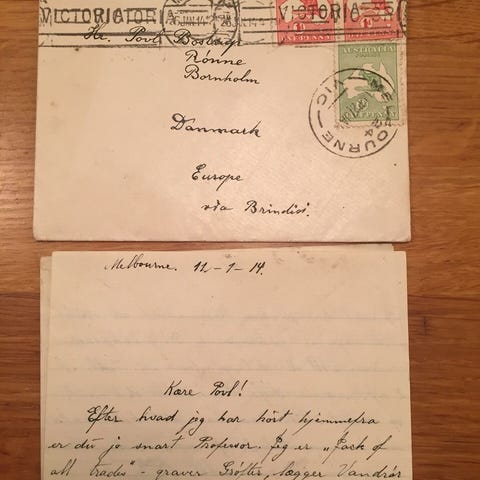 VICTORIA
VICTORIA
Hr. Povl
Rönne
Bornholm
Danmark
Europe
via Brindisi.
AUSTRALIA
MELBOURNE
Melbourne. 12-1-14.
Kære Povl!
Efter hvad jeg har hørt hjemmefra
er du jo snart Professor. Jeg er „Jack of
all trades" - graver Grøfter, lægger Vandrør